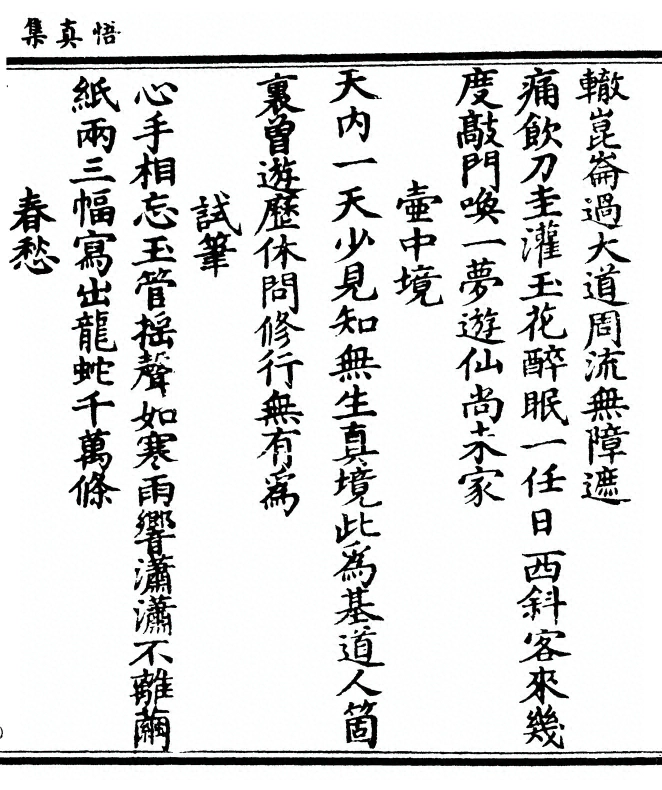 悟真集
轍崑崙過大道周流無障遮
痛飲刀圭灌玉花醉眠一任日西斜客來幾
度敲門喚一夢遊仙尚未家
壷中境
天內一天少見知無生真境此爲基道人箇
裏曾遊歷休問修行無有爲
試筆
心手相忘玉管揺聲如寒雨響瀟瀟不離繭
紙兩三幅寫出龍蛇千萬條
春愁